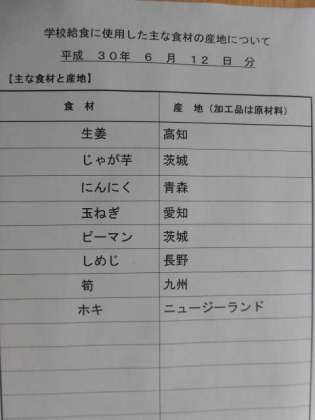 学校給食に使用した主な食材の産地について
平成 30年 6 月 12 日 分
【主な食材と産地】
食 材 産 地（加工品は原材料）
生姜 高知
じゃが芋 茨城
にんにく 青森
玉ねぎ 愛知
ピーマン 茨城
しめじ 長野
筍 九州
ホキ ニュージーランド